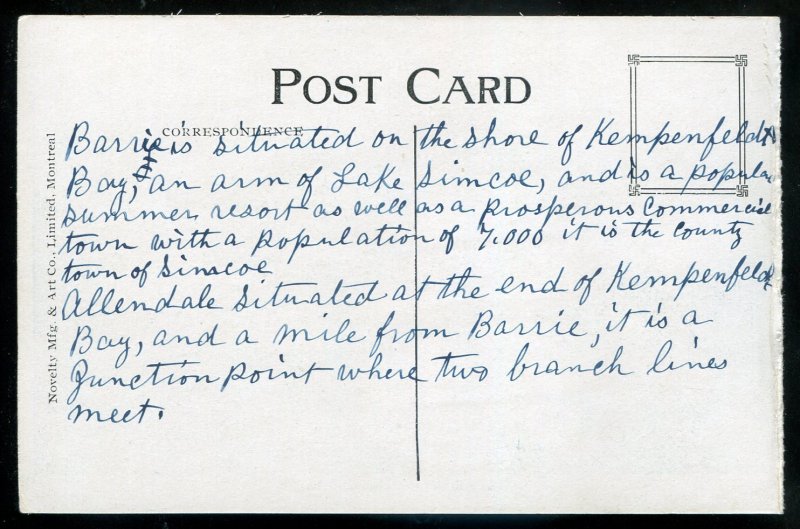 POST CARD
CORRESPONDENCE
Barrie is situated on the shore of Kempenfeldt
Bay, an arm of Lake Simcoe, and is a popular
summer resort as well as a prosperous Commercial
town with a population of 7.000 it is the County
town of Simcoe
Allendale situated at the end of Kempenfeldt
Bay, and a mile from Barrie, it is a
Junction point where two branch lines
meet.
Novelty Mfg. & Art Co., Limited, Montreal